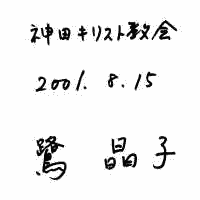 神田キリスト教会
2001. 8. 15
鷺 晶子